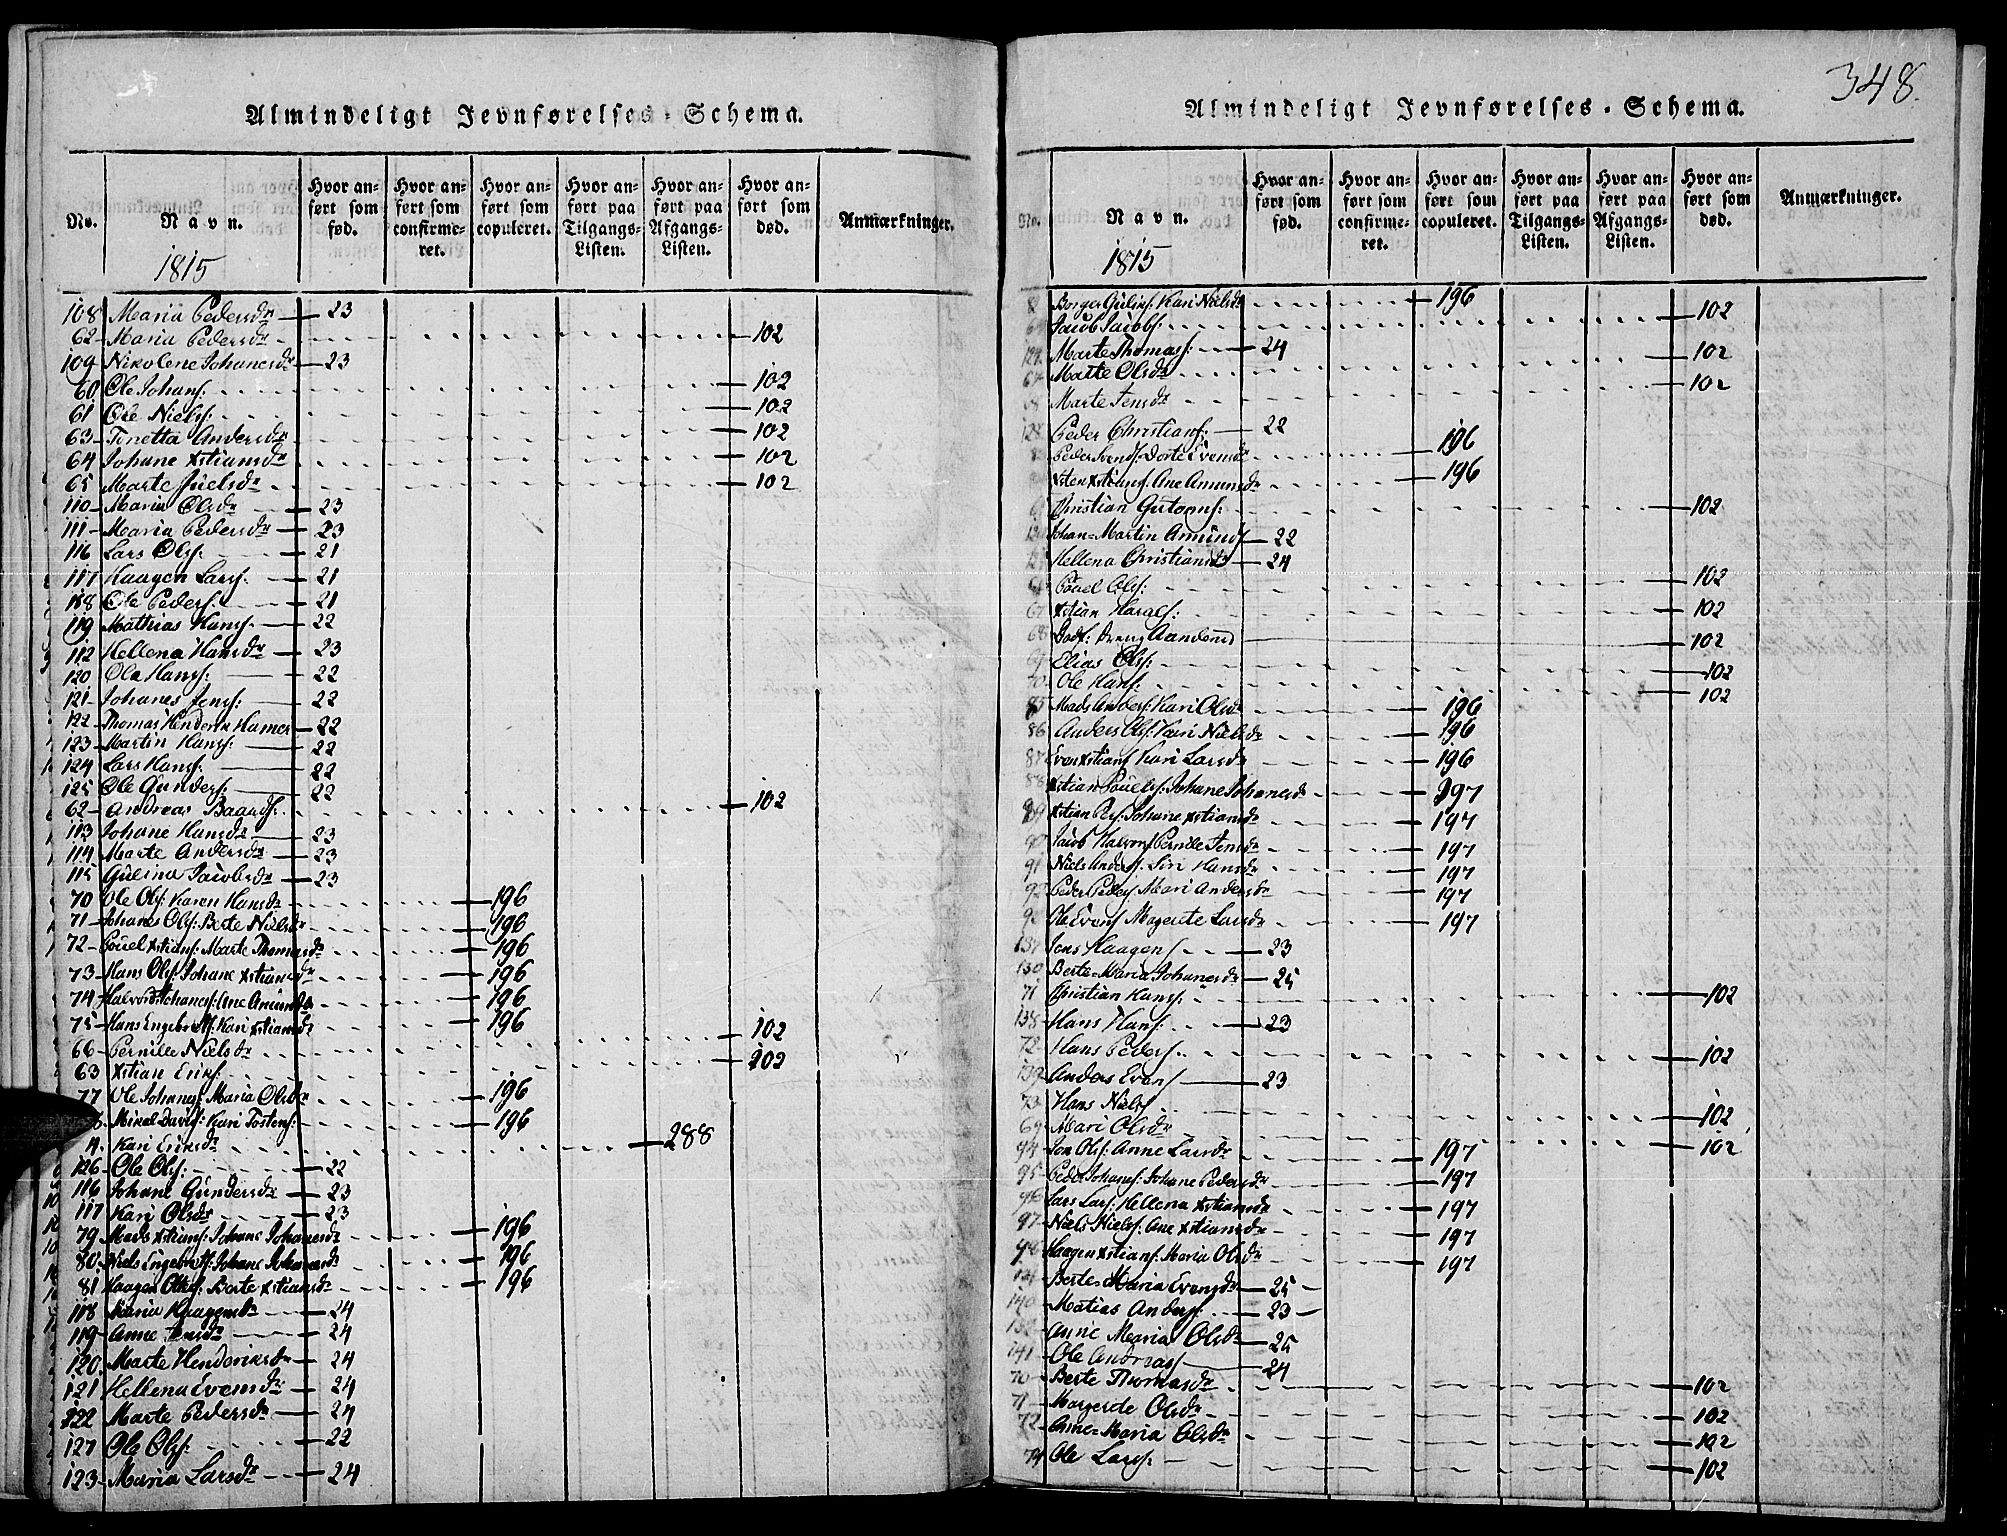 348.
Almindeligt Jevnførelses-Schema.
No. Navn. Hvor anført som fød. Hvor anført som confirmeret. Hvor anført som copuleret. Hvor anført paa Tilgangs-Listen. Hvor anført paa Afgangs-Listen. Hvor anført som død. Anmærkninger.
1815
108 Maria Pedersdr 23
62 Maria Pedersdr 102
109 Nikolene Johanesdr 23
60 Ole Johans: 102
61 Ole Niels: 102
63 Tonetta Andersdr 102
64 Johane Xstiansdr 102
65 Marte Juelsdr 102
110 Maria Olsdr 23
111 Maria Pedersdr 23
116 Lars Ols: 21
117 Haagen Lars: 21
118 Ole Peders: 21
119 Mathias Hans: 22
112 Hellena Hansdr 23
120 Ola Hans: 22
121 Johanes Jens: 22
122 Thomas Henderik Hamer 22
123 Martin Hans: 22
124 Lars Hans: 22
125 Ole Gunders: 22
62 Andreas Baards: 102
113 Johane Hansdr 23
114 Marte Andersdr 23
115 Gulina Jacobsdr 23
70 Ole Ols: Karen Hansdr 196
71 Johanes Ols: Berte Nielsdr 196
72 Pouel Xstians: Marte Thomasdr 196
73 Hans Ols: Johane Xstiansdr 196
74 Halvor Johanes: Ane Amundsdr 196
75 Hans Engebrets: Kari Xstiansdr 196
66 Pernille Nielsdr 102
63 Xstian Eriks: 102
77 Ole Johans: Maria Olsdr 196
Mikel Davids: Kari Tostens: 196
4 Kari Eriksdr 288
126 Ole Ols: 22
116 Johane Gundersdr 23
117 Kari Olsdr 23
79 Mads Xstians: Johane Johanesdr 196
80 Niels Engebrets: Johane Johanesdr 196
81 Haagen Ols: Berte Xstiansdr 196
118 Maria Haagensdr 24
119 Anne Jensdr 24
120 Marte Henderiksdr 24
121 Hellena Evensdr 24
122 Marte Pedersdr 24
127 Ole Ols: 22
123 Maria Larsdr 24
Almindeligt Jevnførelses-Schema.
No. Navn. Hvor anført som fød. Hvor anført som confirmeret. Hvor anført som copuleret. Hvor anført paa Tilgangs-Listen. Hvor anført paa Afgangs-Listen. Hvor anført som død. Anmærkninger.
1815
Borger Gulins: Kari Nielsdr 196
Jacob Jacobs: 102
Marte Thomas: 24
Marte Olsdr 102
Marte Jensdr 102
Peder Christians: 22
Peder Svends: Dorte Evensdr 196
Xstians: Ane Amundsdr 196
Christian Gutorms: 102
Johan Martin Amunds 22
Hellena Christiansdr 24
Pouel Ols: 102
67 Xstian Harals: 102
68 Dødf: Dreng Aanelond 102
Elias Ols: 102
70 Ole Hans: 102
85 Mads Anders: Kari Olsdr 196
86 Anders Ols: Kari Nielsdr 196
87 Even Xstians Kari Larsdr 196
88 Xstian Pouels: Johane Johanesdr 197
89 Xstian Johane Xstiansdr 197
90 Jacob Halvors Pernille Jensdr 197
91 Niels Anders: Siri Hansdr 197
92 Peder Peders Mari Andersdr 197
93 Ole Evens Magrete Larsdr 197
137 Jens Haagens 23
130 Berte Maria Johanesdr 25
71 Christian Hans: 102
138 Hans Hans: 23
72 Hans Peders: 102
139 Anders Evens 23
73 Hans Niels 102
69 Mari Olsdr 102
94 Jon Ols: Anne Larsdr 197
95 Peder Johans: Johane Pedersdr 197
96 Lars Lars: Hellena Xstiansdr 197
97 Niels Niels: Ane Xstiansdr 197
98 Haagen Xstians: Maria Olsdr 197
131 Berte Maria Evensdr 25
140 Matias Anders: 23
132 Anne Maria Olsdr 25
141 Ole Andreas 24
70 Berte Thomasdr 102
71 Margrete Olsdr 102
72 Anne Maria Olsdr 102
74 Ole Lars: 102